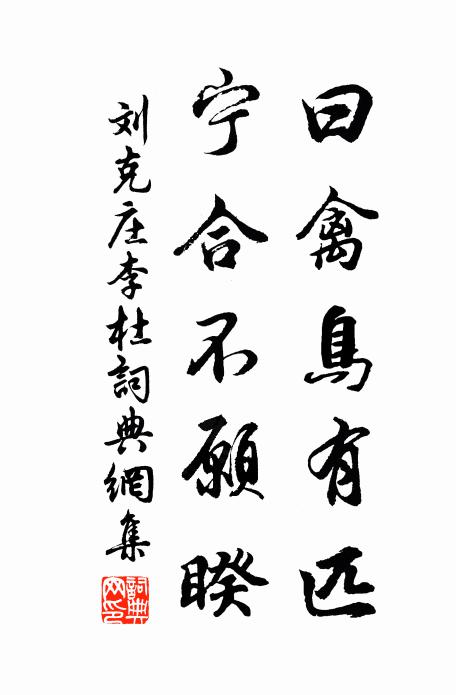 曰禽鳥有匹
宁合不願睽
刘克庄李杜詞典網集
詞典网印